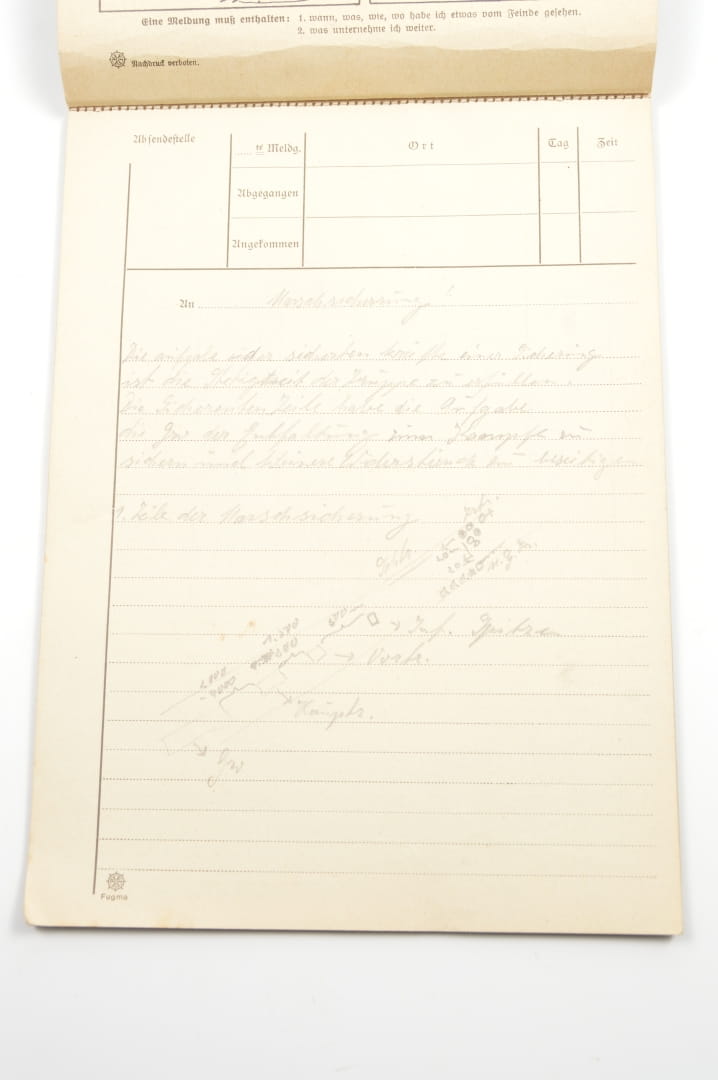 Eine Meldung muß enthalten: 1. wann, was, wie, wo habe ich etwas vom Feinde gesehen.
2. was unternehme ich weiter.
Nachdruck verboten.
Absendestelle
..... te Meldg.
Ort
Tag
Zeit
Abgegangen
Angekommen
An Marschsicherung!
Die aufgabe der sichernden kräfte einer Sicherung
ist die Stetigkeit der Truppe zu erfüllen.
Die Sichernden Teile haben die Aufgabe
die Gro der Entfaltung zum Kampfe zu
sichern und kleinere Widerstände zu beseitigen
1. Teile der Marschsicherung
Inf. Spitze
Vortr.
Haupttr.
Gro
Fugma